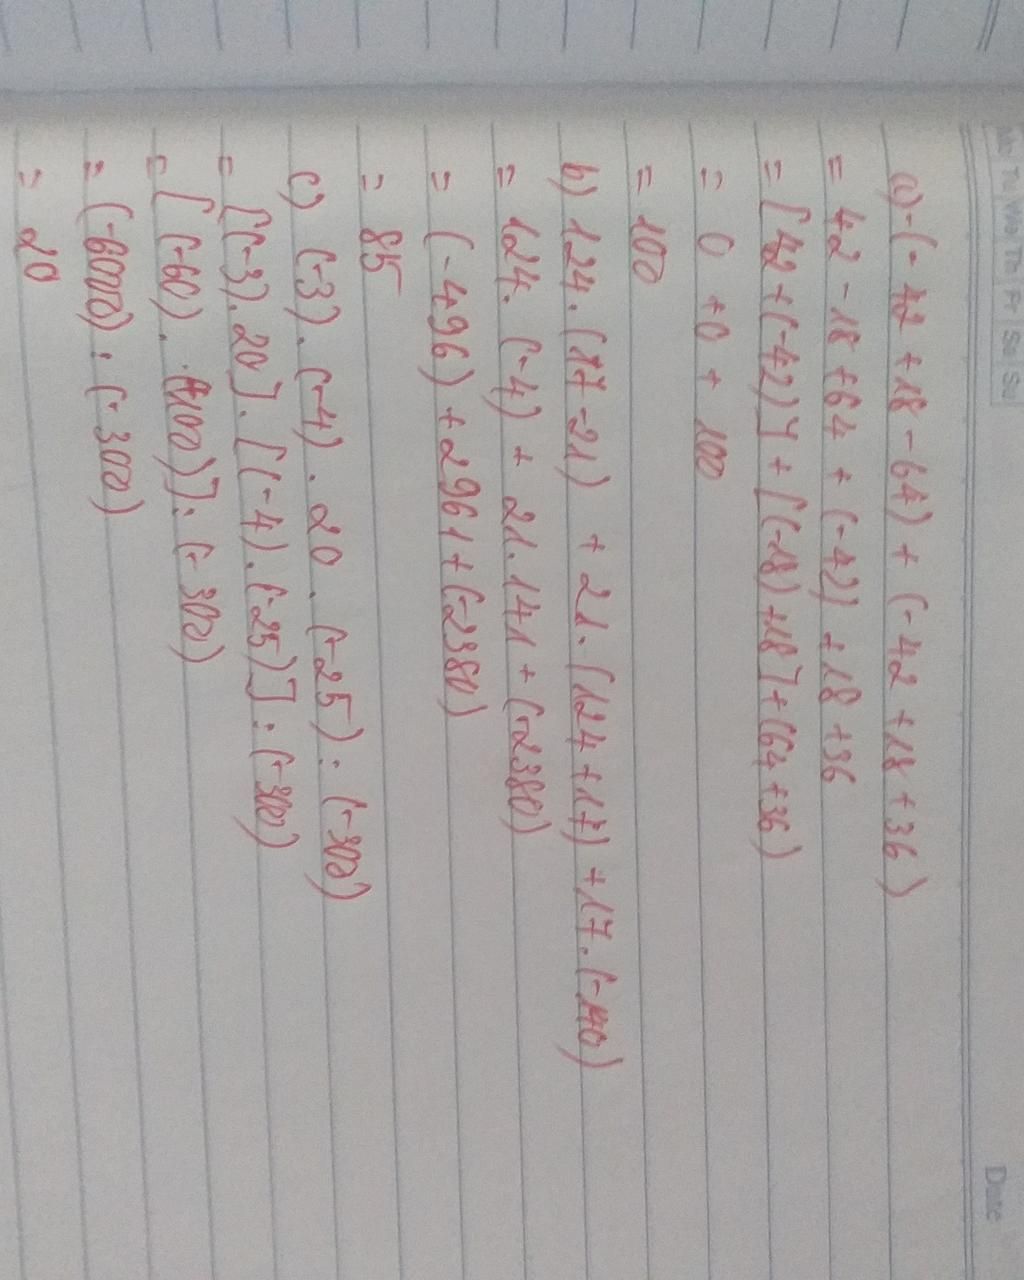 Mo Tu We Th Fr Sa Su
Date
a) -(-42 + 18 - 64) + (-42 + 18 + 36)
= 42 - 18 + 64 + (-42) + 18 + 36
= [42 + (-42)] + [(-18) + 18] + (64 + 36)
= 0 + 0 + 100
= 100
b) 124. (17 - 21) + 21. (124 + 17) + 17. (-140)
= 124. (-4) + 21. 141 + (-2380)
= (-496) + 2961 + (-2380)
= 85
c) (-3). (-4). 20. (-25) : (-300)
= [(-3). 20]. [(-4). (-25)] : (-300)
= [(-60). 100)] : (-300)
= (-6000) : (-300)
= 20